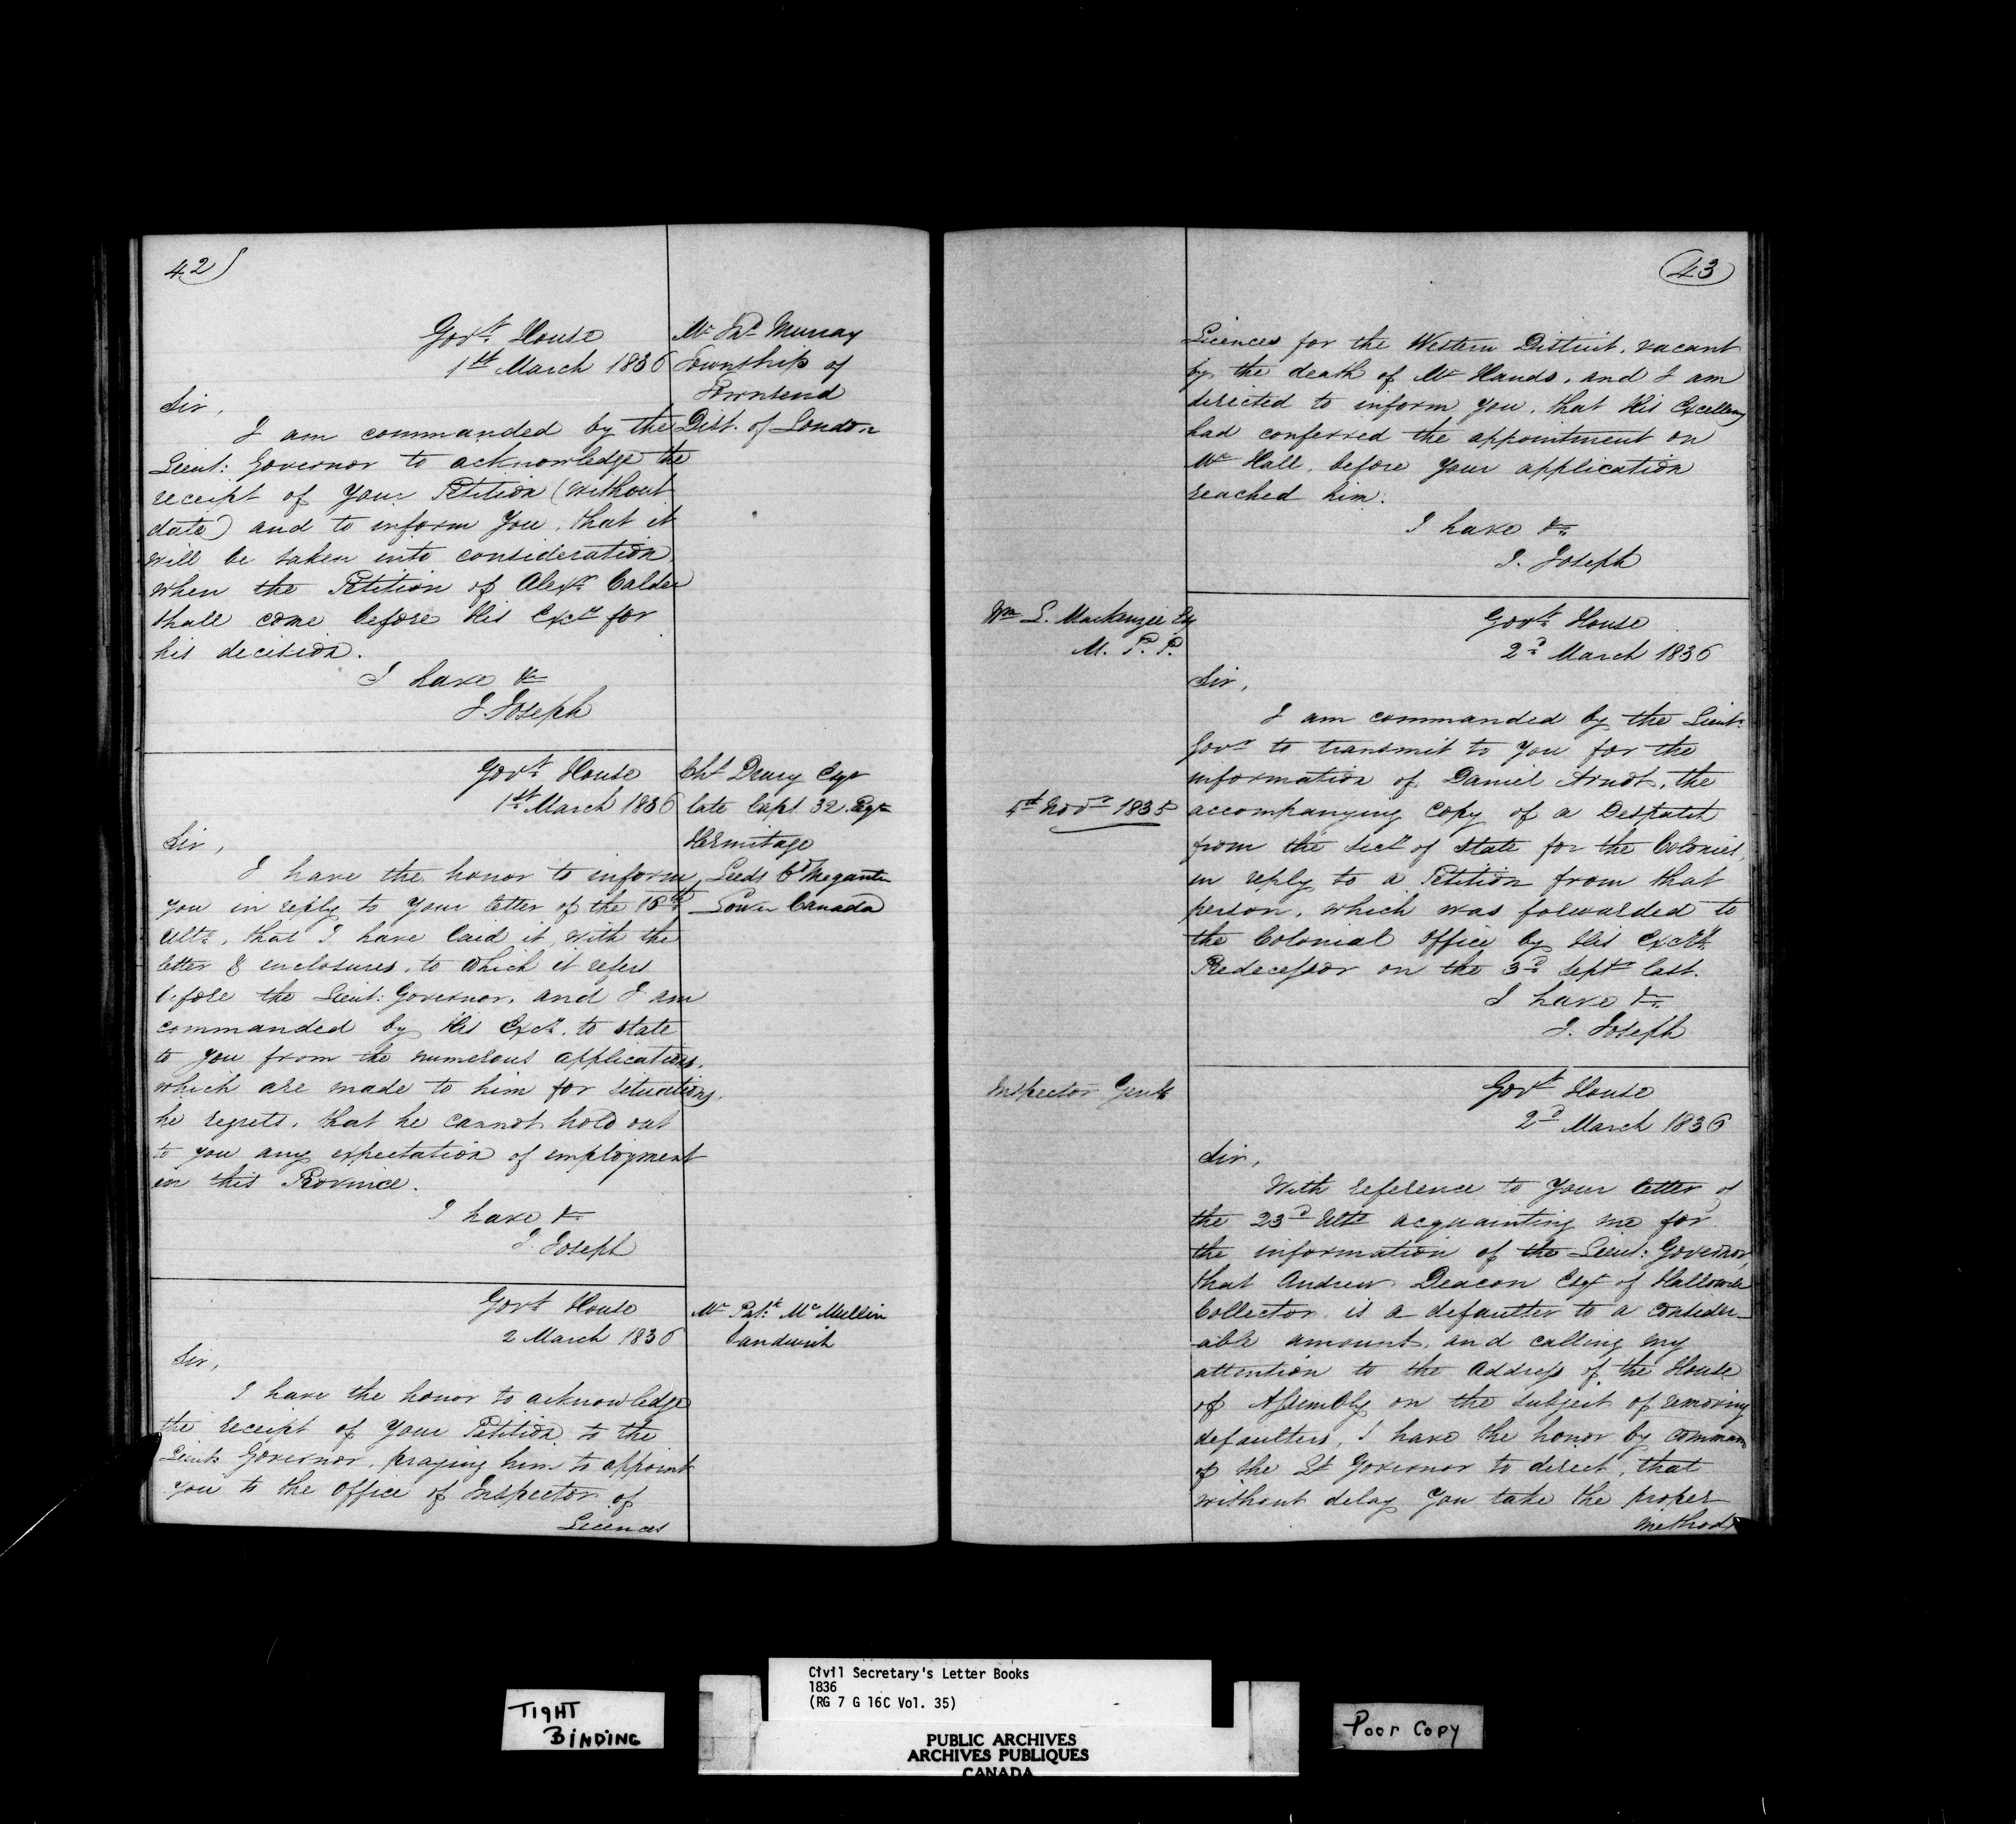 42)
Govt. House
1st March 1836
Mr Jno. Murray
Township of
Townsend
Dist. of London
Sir,
I am commanded by the
Lieut: Governor to acknowledge the
receipt of your Petition (without
date) and to inform you, that it
will be taken into consideration
when the Petition of Alexr. Calder
shall come before His Excy for
his decision.
I have &c
J. Joseph
Govt. House
1st March 1836
Cht Drury Esqr
late Capt 32 Regt
Hermitage
Leeds Cy Megantic
Lower Canada
Sir,
I have the honor to inform
you in reply to your letter of the 16th
Ulto., that I have laid it, with the
letter & enclosures, to which it refers
before the Lieut: Governor, and I am
commanded by His Excy. to state
to you from the numerous applications,
which are made to him for situations,
he regrets, that he cannot hold out
to you any expectation of employment
in this Province.
I have &c
J. Joseph
Govt House
2 March 1836
Mr Patk. McMullin
Sandwich
Sir,
I have the honor to acknowledge
the receipt of your Petition to the
Lieut: Governor, praying him to appoint
you to the Office of Inspector of
Licences
43
Licences for the Western District, vacant
by the death of Mr Hands, and I am
directed to inform you, that His Excellency
had conferred the appointment on
Mr Hall, before your application
reached him.
I have &c.
J. Joseph
Wm L. Mackenzie Esq
M. P. P.
Govt. House
2d March 1836
Sir,
I am commanded by the Lieut.
Govr to transmit to you for the
information of Daniel Arndt, the
5th Novr 1835
accompanying Copy of a Despatch
from the Secy of State for the Colonies,
in reply to a Petition from that
person, which was forwarded to
the Colonial Office by His Excy's
Predecessor on the 3d Septr last.
I have &c.
J. Joseph
Inspector Genl
Govt House
2d March 1836
Sir,
With reference to your letter of
the 23d Ulto acquainting me for
the information of the Lieut: Governor,
that Andrew Deacon Esqr of Hallowell
Collector, is a defaulter to a consider-
able amount, and calling my
attention to the Address of the House
of Assembly on the subject of removing
defaulters, I have the honor by command
of the Lt Governor to direct, that
without delay you take the proper
methods
TIGHT
BINDING
Civil Secretary's Letter Books
1836
(RG 7 G 16C Vol. 35)
PUBLIC ARCHIVES
ARCHIVES PUBLIQUES
CANADA
Poor Copy